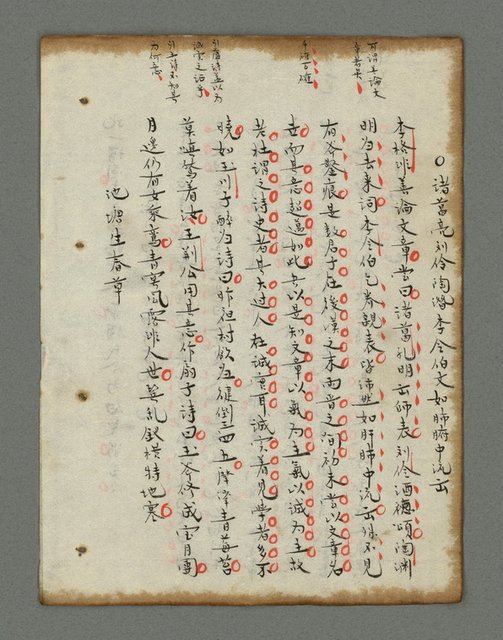 可謂善論文
章者矣
千鍾百鍊
引盧詩並以為
誠實之語乎
引王詩不知其
乃何意
○諸葛亮劉伶陶潛李令伯文如肺腑中流出
李格非善論文章嘗曰諸葛孔明出師表劉伶酒德頌陶淵
明歸去來詞李令伯乞養親表皆沛然如肝肺中流出殊不見
有斧鑿痕是數君子在後漢之末兩晉之間初未嘗以文章名
世而其意超邁如此吾以是知文章以氣為主氣以誠為主故
老杜謂之詩史者其大過人在誠實耳誠實著見學者多不
曉如玉川子醉歸詩曰昨夜村飲歸健倒三四五摩挲青莓苔
莫嗔驚著汝王荊公用其意作扇子詩曰玉斧修成寶月團
月邊仍有女乘鸞青冥風露非人世鬢亂釵橫特地寒
池塘生春草